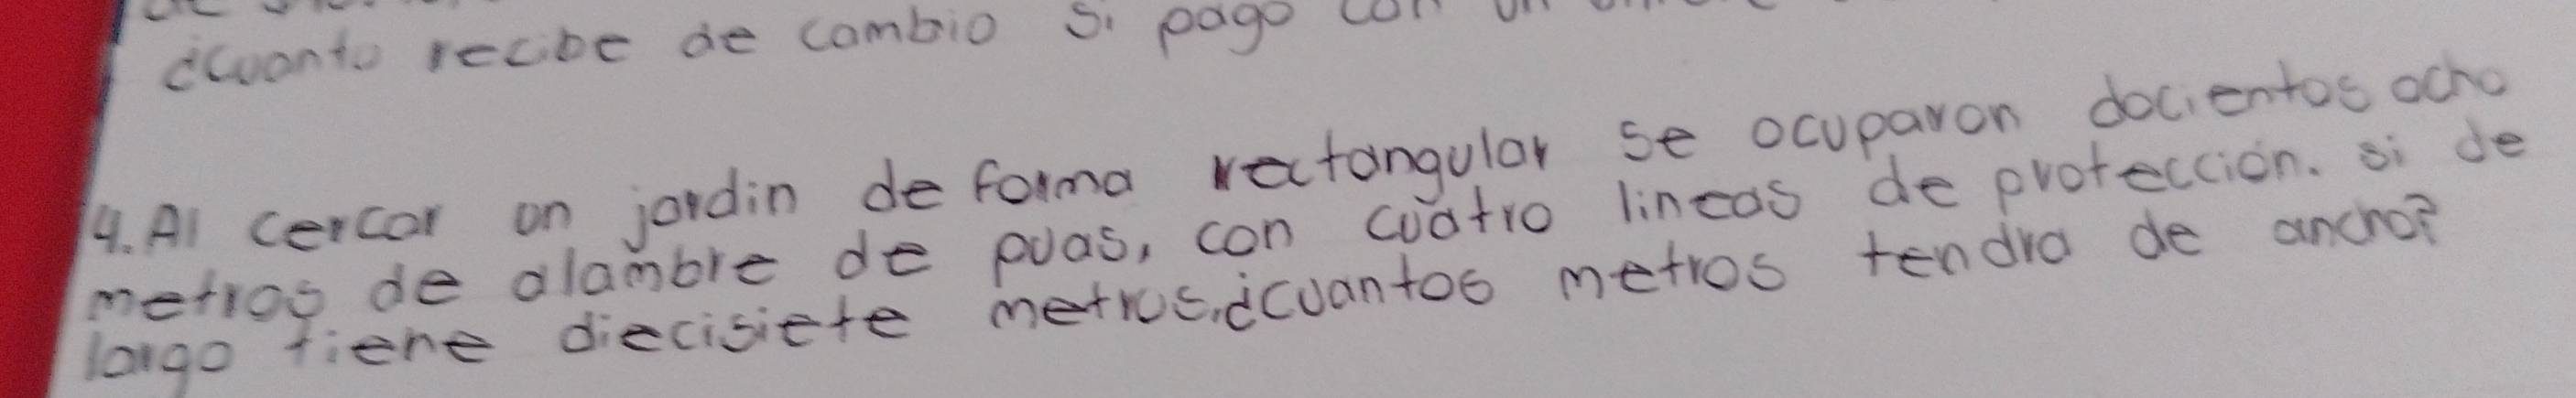 ¿cuanto recibe de cambio si pago con un
4. Al cercar un jardin de forma rectangular se ocuparon docientos ocho
metros de alambre de puas, con cuatro lineas de protección. si de
largo tiene diecisiete metros,¿cuantos metros tendra de ancho?